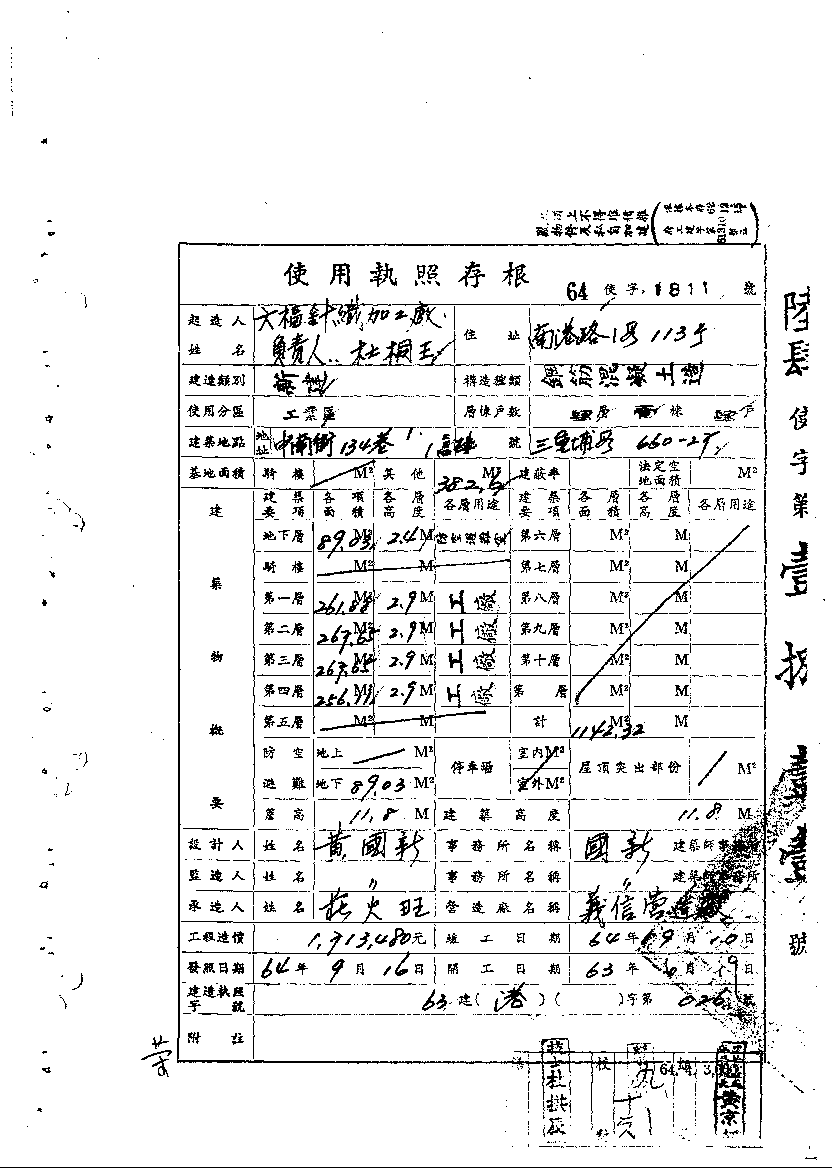 使用執照存根
64 使字 1811 號
起造人 姓名 六福針織加工廠 負責人 杜桐玉 住址 南港路一段113号
建造類別 新建 構造種類 鋼筋混凝土造
使用分區 工業區 層棟戶數 層 棟 戶
建築地點 地址 中南街134巷1 號 三重埔段 660-2
基地面積 騎樓 M² 其他 M² 382.5 建蔽率 法定空地面積 M²
建築物概要
建築要項 各項面積 各層高度 各層用途 建築要項 各層面積 各層高度 各層用途
地下層 89.03 M² 2.4 M 防空避難室 第六層 M² M
騎樓 M² M 第七層 M² M
第一層 261.88 M² 2.9 M 工廠 第八層 M² M
第二層 267.65 M² 2.9 M 工廠 第九層 M² M
第三層 267.65 M² 2.9 M 工廠 第十層 M² M
第四層 256.11 M² 2.9 M 工廠 第 層 M² M
第五層 M² M 計 1142.32 M²
防空避難 地上 M² 地下 89.03 M² 停車場 室內 M² 室外 M² 屋頂突出部份 M²
簷高 11.8 M 建築高度 11.8 M
設計人 姓名 黃國新 事務所名稱 國新 建築師事務所
監造人 姓名 〃 事務所名稱 〃 建築師事務所
承造人 姓名 火旺 營造廠名稱 義信營造廠
工程造價 1,913,480元 竣工日期 64年9月10日
發照日期 64年9月16日 開工日期 63年 月19日
建造執照字號 63 建(港)( )字第 026 號
附註
陸肆使字第壹捌壹壹號